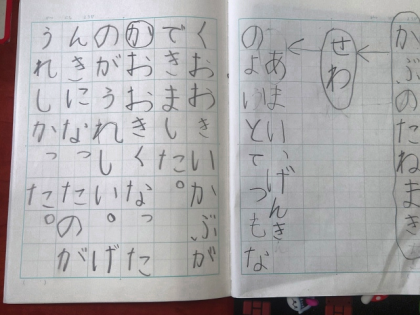 かぶのたねまき
せわ
あまい、げんき
のよいとてつもな
くおおきいかぶが
できました。
かおおきくなった
のがうれしい。げ
んきになったのが
うれしかった。